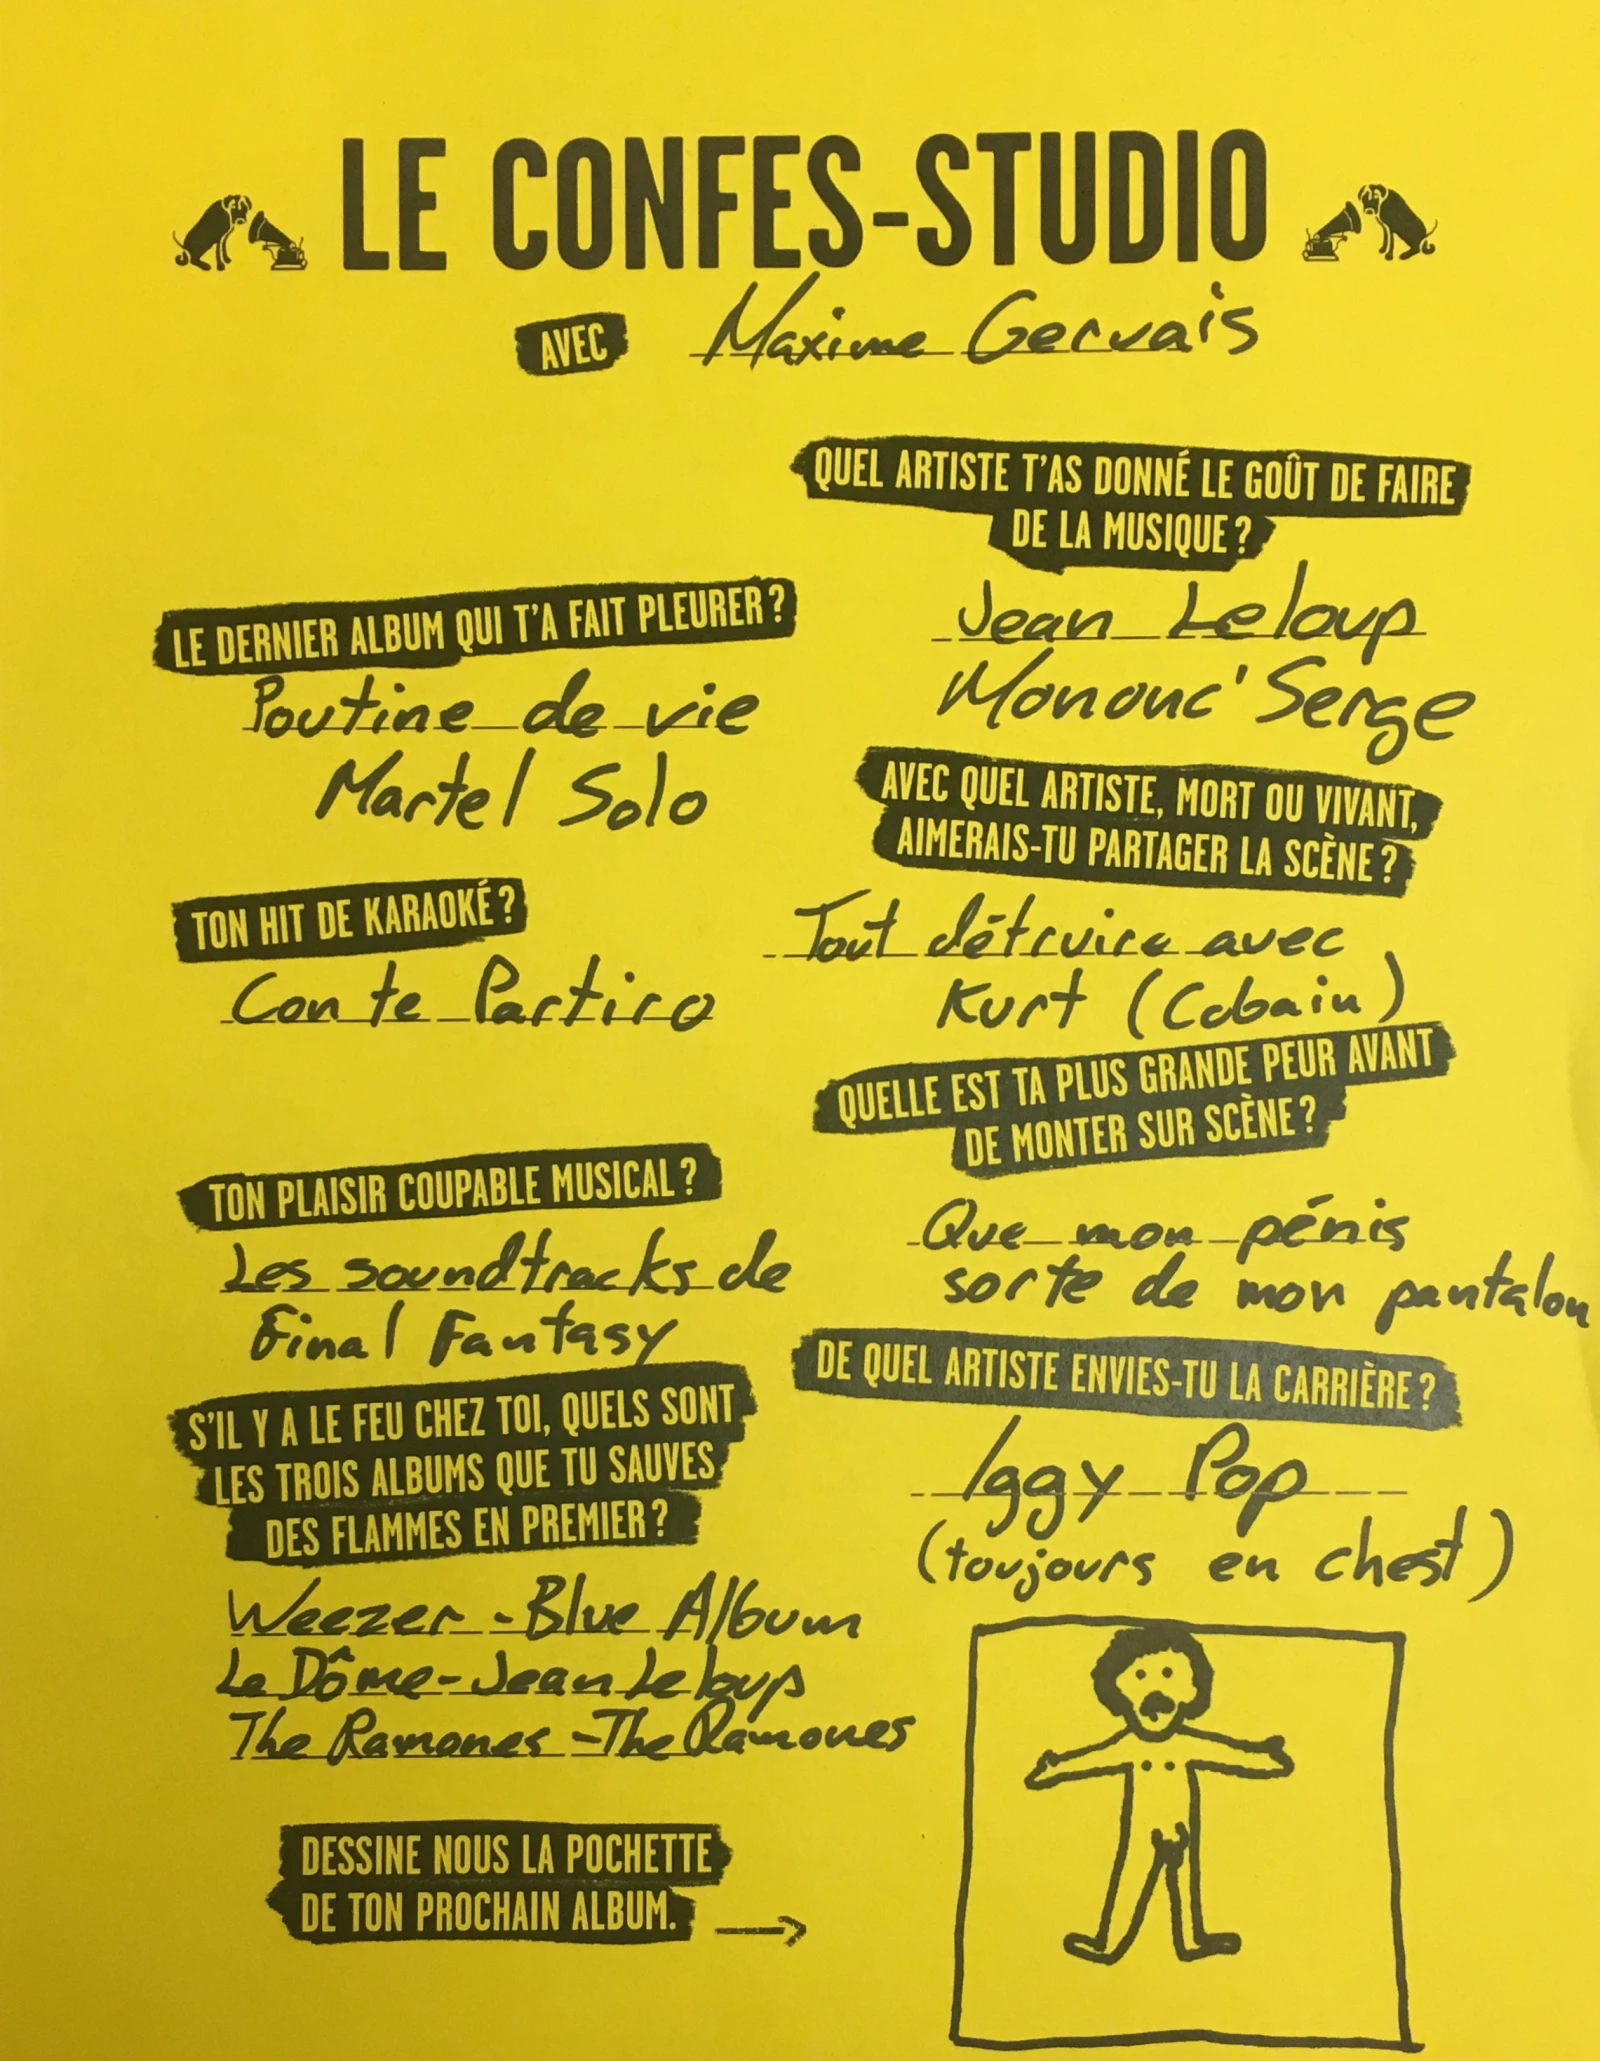 LE CONFES-STUDIO
AVEC Maxime Gervais
LE DERNIER ALBUM QUI T'A FAIT PLEURER?
Poutine de vie
Martel Solo
TON HIT DE KARAOKÉ?
Con te Partiro
TON PLAISIR COUPABLE MUSICAL?
Les soundtracks de
Final Fantasy
S'IL Y A LE FEU CHEZ TOI, QUELS SONT
LES TROIS ALBUMS QUE TU SAUVES
DES FLAMMES EN PREMIER?
Weezer - Blue Album
Le Dôme - Jean Leloup
The Ramones - The Ramones
DESSINE NOUS LA POCHETTE
DE TON PROCHAIN ALBUM.
QUEL ARTISTE T'AS DONNÉ LE GOÛT DE FAIRE
DE LA MUSIQUE?
Jean Leloup
Mononc' Serge
AVEC QUEL ARTISTE, MORT OU VIVANT,
AIMERAIS-TU PARTAGER LA SCÈNE?
Tout détruire avec
Kurt (Cobain)
QUELLE EST TA PLUS GRANDE PEUR AVANT
DE MONTER SUR SCÈNE?
Que mon pénis
sorte de mon pantalon
DE QUEL ARTISTE ENVIES-TU LA CARRIÈRE?
Iggy Pop
(toujours en chest)